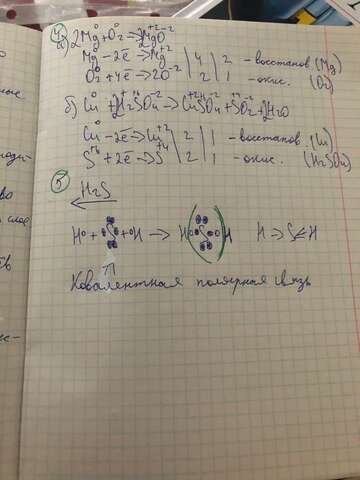 4) а) 2Mg⁰ + O₂⁰ → 2Mg⁺²O⁻²
Mg⁰ - 2ē → Mg⁺² | 4 | 2 - восстанов (Mg)
O₂⁰ + 4ē → 2O⁻² | 2 | 1 - окис. (O₂)
б) Cu⁰ + 2H₂⁺S⁺⁶O₄⁻² → Cu⁺²SO₄⁻² + S⁺⁴O₂⁻² + 2H₂O
Cu⁰ - 2ē → Cu⁺² | 2 | 1 - восстанов. (Cu)
S⁺⁶ + 2ē → S⁺⁴ | 2 | 1 - окис. (H₂SO₄)
5) H₂S
H + S + H → H S H H → S ← H
Ковалентная полярная связь